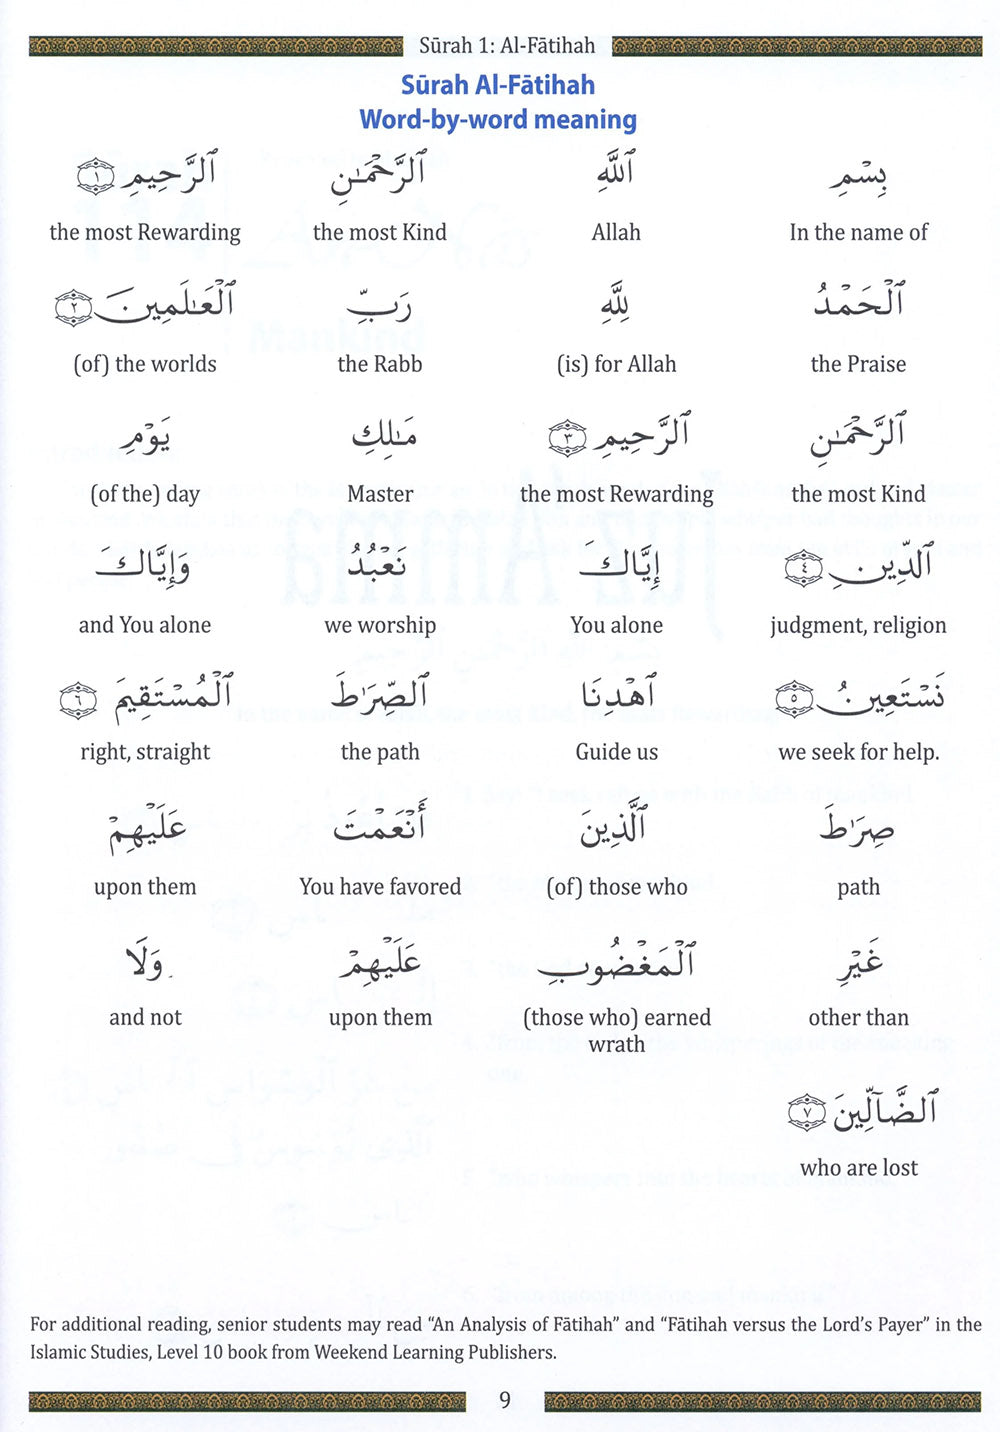 Sūrah 1: Al-Fātihah
Sūrah Al-Fātihah
Word-by-word meaning
بِسْمِ ٱللَّهِ ٱلرَّحْمَـٰنِ ٱلرَّحِيمِ ١
In the name of Allah the most Kind the most Rewarding
ٱلْحَمْدُ لِلَّهِ رَبِّ ٱلْعَـٰلَمِينَ ٢
the Praise (is) for Allah the Rabb (of) the worlds
ٱلرَّحْمَـٰنِ ٱلرَّحِيمِ ٣ مَـٰلِكِ يَوْمِ
the most Kind the most Rewarding Master (of the) day
ٱلدِّينِ ٤ إِيَّاكَ نَعْبُدُ وَإِيَّاكَ
judgment, religion You alone we worship and You alone
نَسْتَعِينُ ٥ ٱهْدِنَا ٱلصِّرَٰطَ ٱلْمُسْتَقِيمَ ٦
we seek for help. Guide us the path right, straight
صِرَٰطَ ٱلَّذِينَ أَنْعَمْتَ عَلَيْهِمْ
path (of) those who You have favored upon them
غَيْرِ ٱلْمَغْضُوبِ عَلَيْهِمْ وَلَا
other than (those who) earned upon them and not
wrath
ٱلضَّآلِّينَ ٧
who are lost
For additional reading, senior students may read “An Analysis of Fātihah” and “Fātihah versus the Lord’s Payer” in the
Islamic Studies, Level 10 book from Weekend Learning Publishers.
9